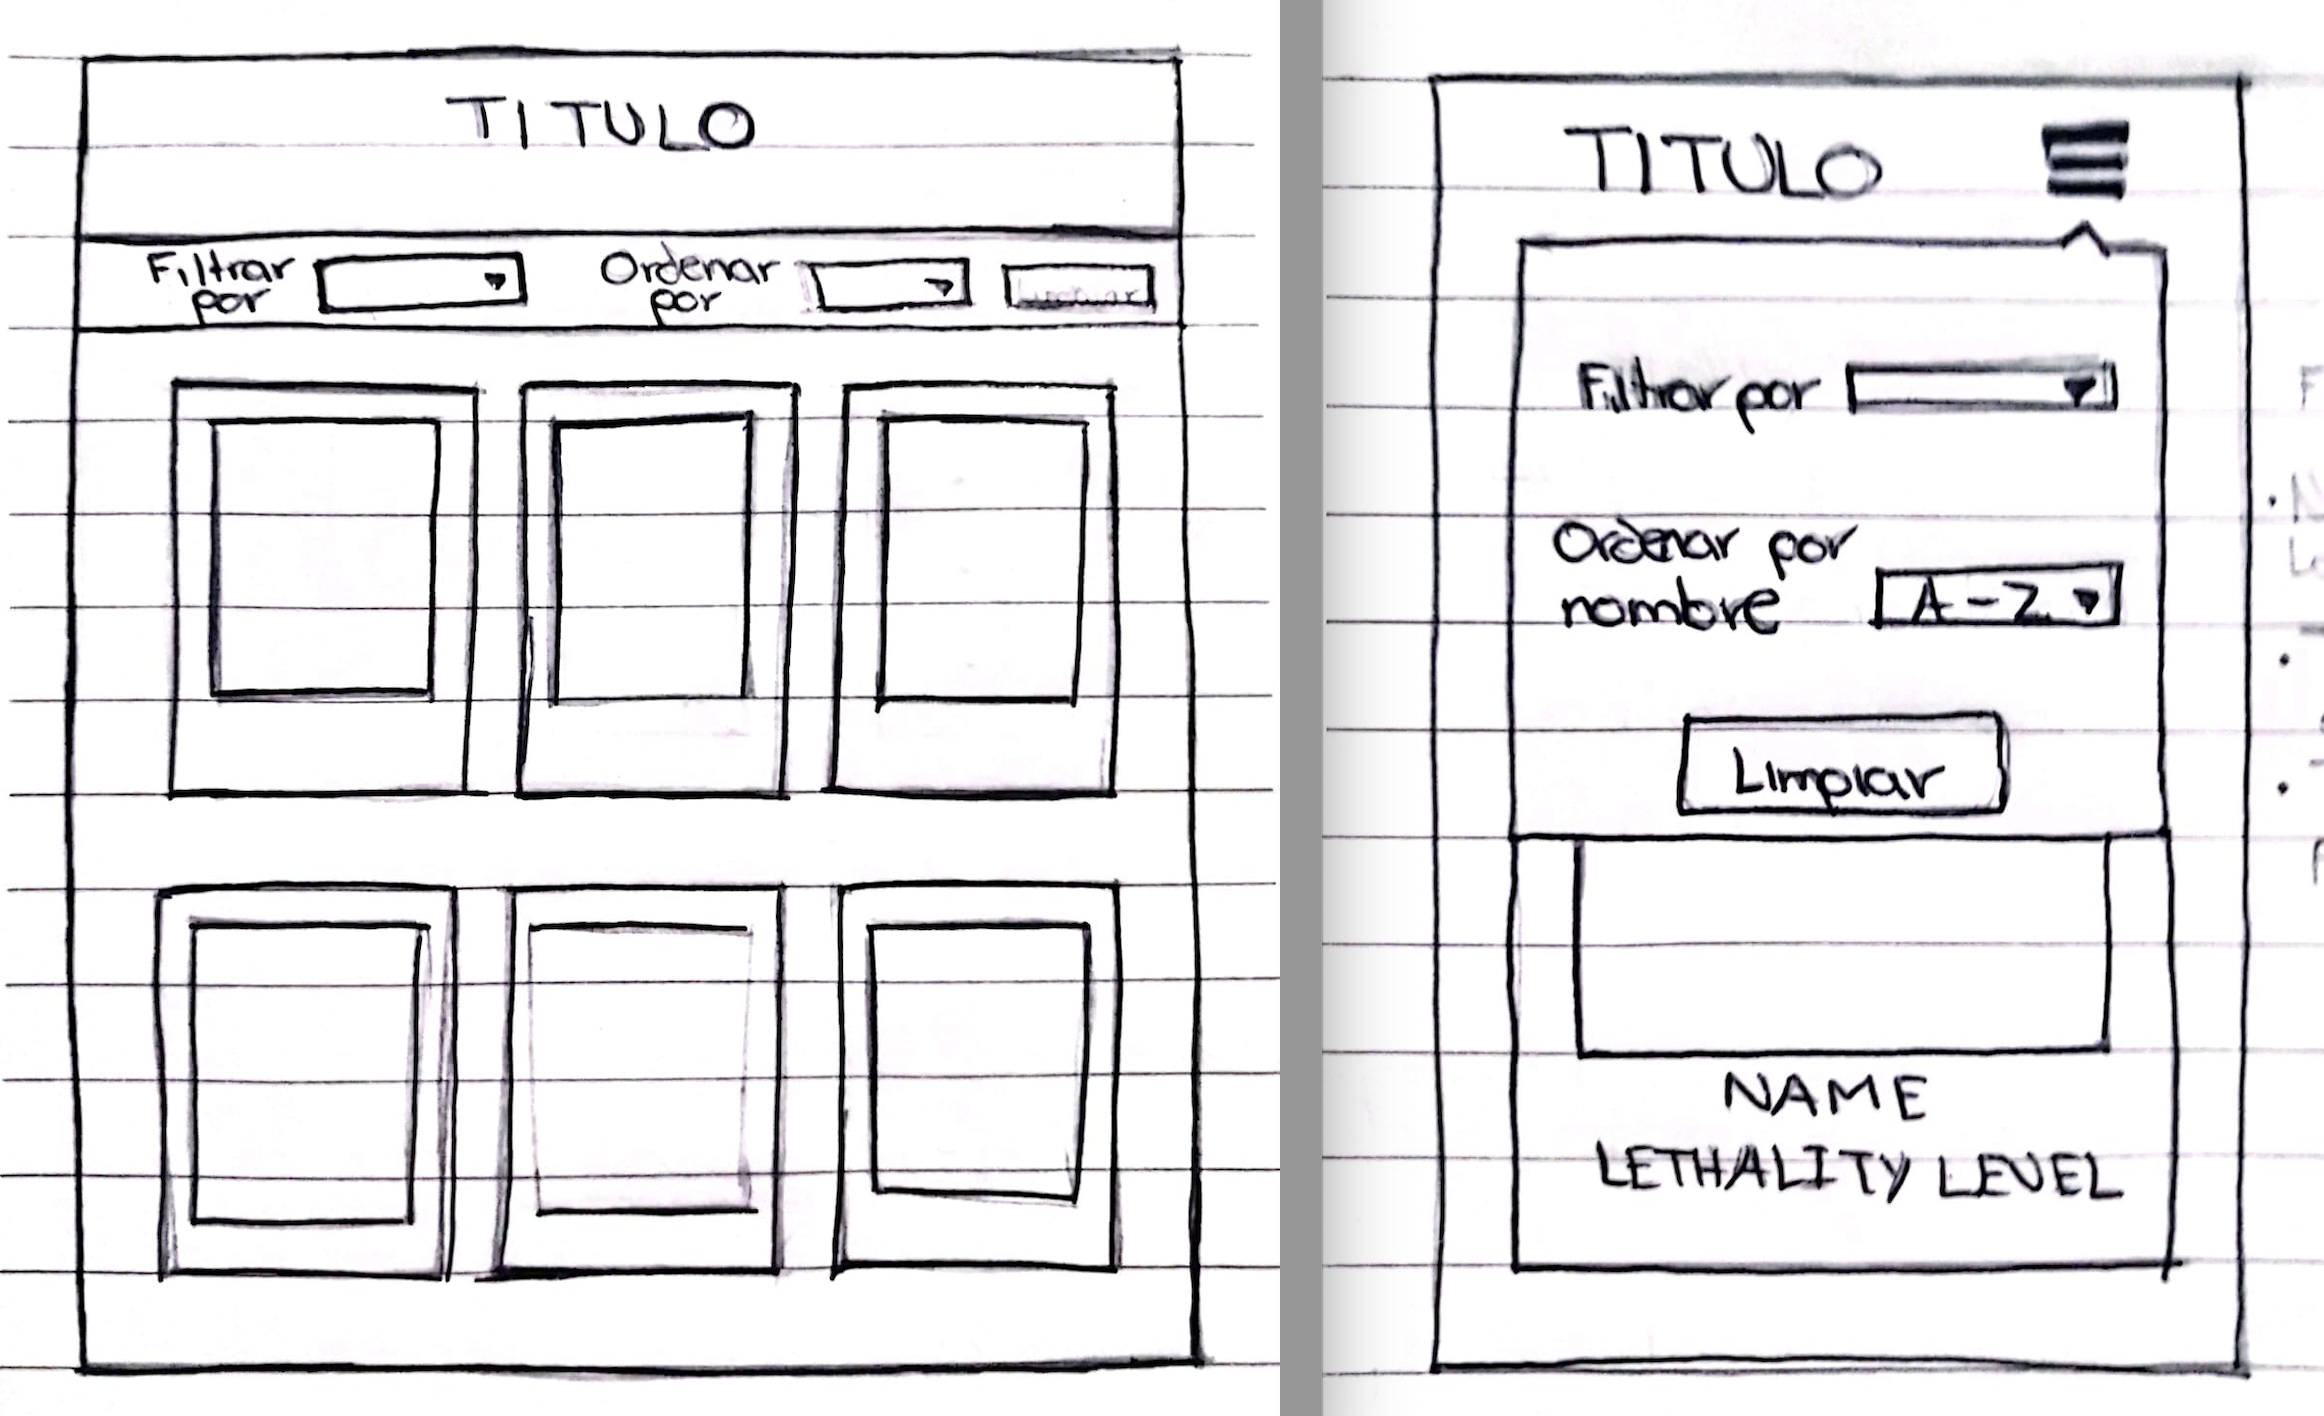 TITULO
Filtrar
por
Ordenar
por
TITULO
Filtrar por
Ordenar por
nombre
A-Z
Limpiar
NAME
LETHALITY LEVEL